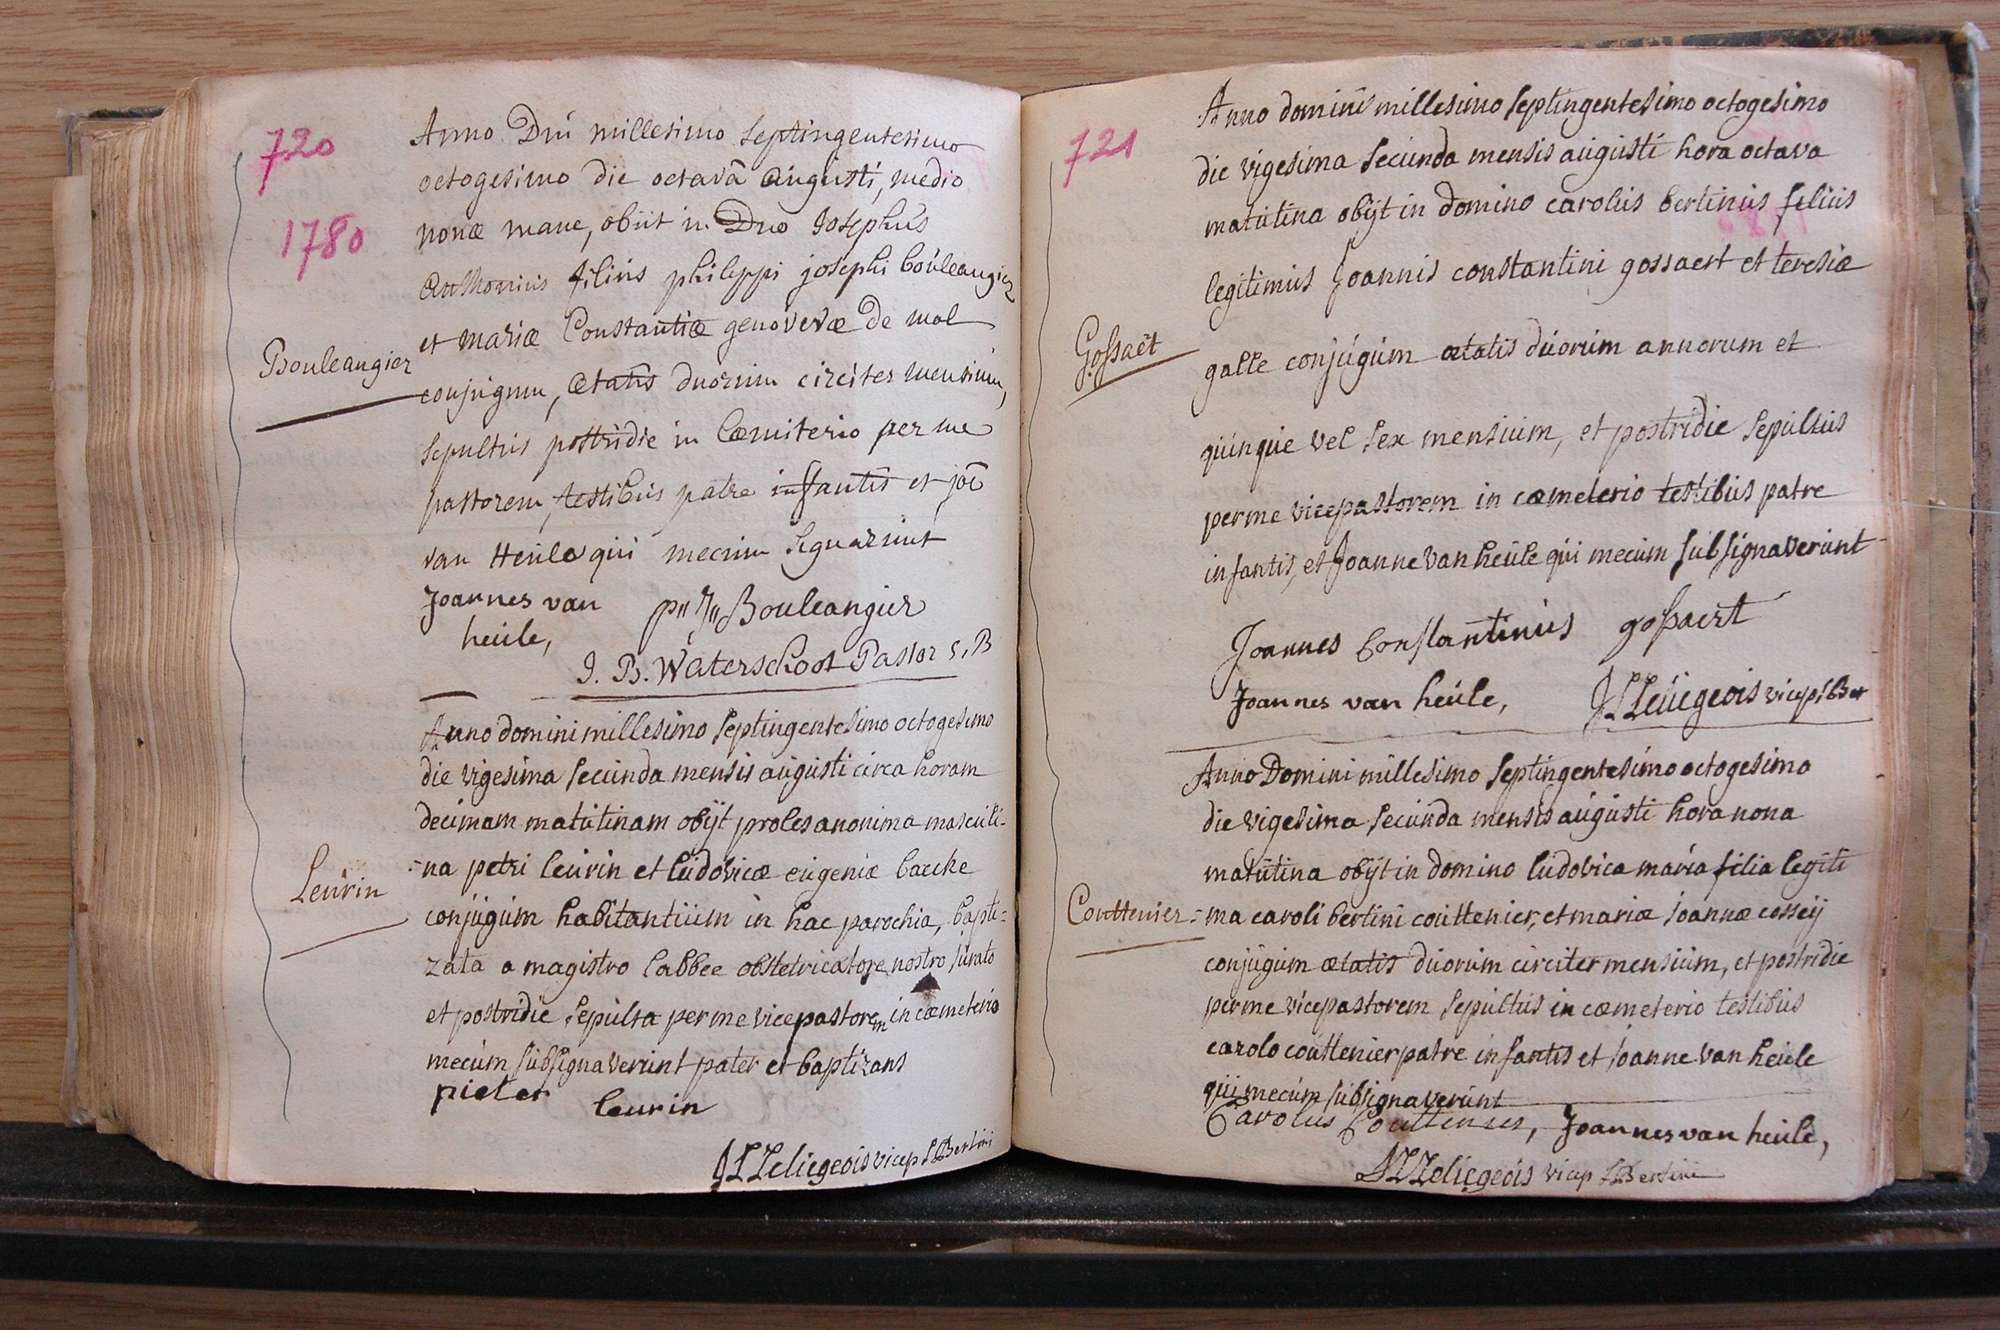 720
1780
Anno Dni millesimo septingentesimo
octogesimo die octavâ augusti, medio
nonæ mane, obiit in Dno Josephus
Anthonius filius philippi josephi bouleangier
Bouleangier
et mariæ Constantiæ genovevæ de mol
conjugum, ætatis duorum circiter mensium,
sepultus postridie in Cœmiterio per me
pastorem, testibus patre infantis et joē
van Heule qui mecum signarunt
Joannes van
heule,
p" J" Bouleangier
J. B. Waterschoot Pastor S. B
Anno domini millesimo septingentesimo octogesimo
die vigesima secunda mensis augusti circa horam
decimam matutinam obijt proles anonima masculi-
Leurin
-na petri leurin et ludovicæ eugeniæ baecke
conjugum habitantium in hac parochia, bapti-
zata a magistro labbee obstetricatore nostro jurato
et postridie sepulta per me vicepastorem in cœmeterio
mecum subsignaverunt pater et baptizans
pieter leurin
JLLeliegeois vicep SBertini
721
Anno domini millesimo septingentesimo octogesimo
die vigesima secunda mensis augusti hora octava
matutina obijt in domino carolus bertinus filius
legitimus Joannis constantini gossaert et teresiæ
Gossaêt
galle conjugum ætatis duorum annorum et
quinque vel sex mensium, et postridie sepultus
per me vicepastorem in cœmeterio testibus patre
infantis, et Joanne van heule qui mecum subsignaverunt
Joannes Constantinus gossaert
Joannes van heule, JLLeliegeois vicep SBer
Anno Domini millesimo septingentesimo octogesimo
die vigesima secunda mensis augusti hora nona
matutina obijt in domino ludovica maria filia legiti
Couttenier
-ma caroli bertini couttenier, et mariæ joannæ cosseij
conjugum ætatis duorum circiter mensium, et postridie
per me vicepastorem sepultus in cœmeterio testibus
carolo couttenier patre infantis et joanne van heule
qui mecum subsignaverunt
Carolus Couttenier, Joannes van heule,
JLLeliegeois vicep SBertini